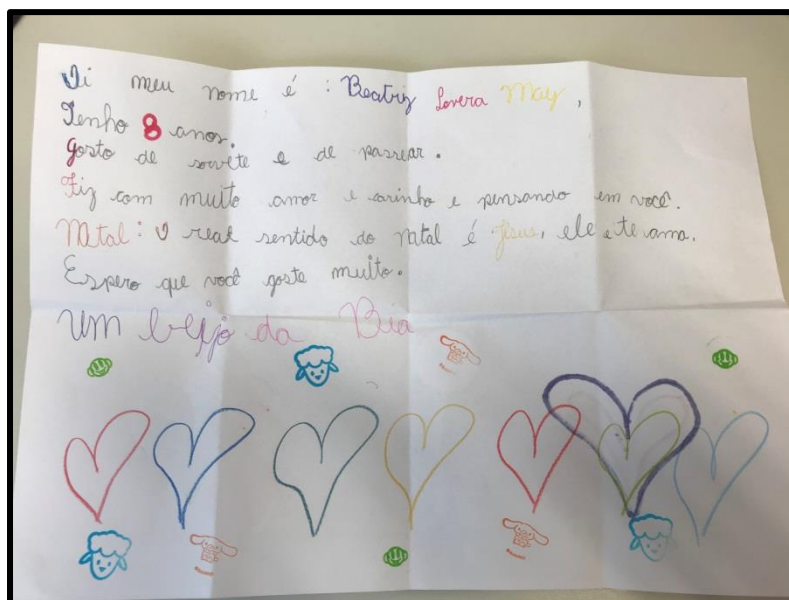 Oi meu nome é : Beatriz Lovera May,
Tenho 8 anos.
Gosto de sorvete e de passear.
Fiz com muito amor e carinho e pensando em você.
Natal: O real sentido do Natal é Jesus, ele e te ama.
Espero que você goste muito.
Um beijo da Bia